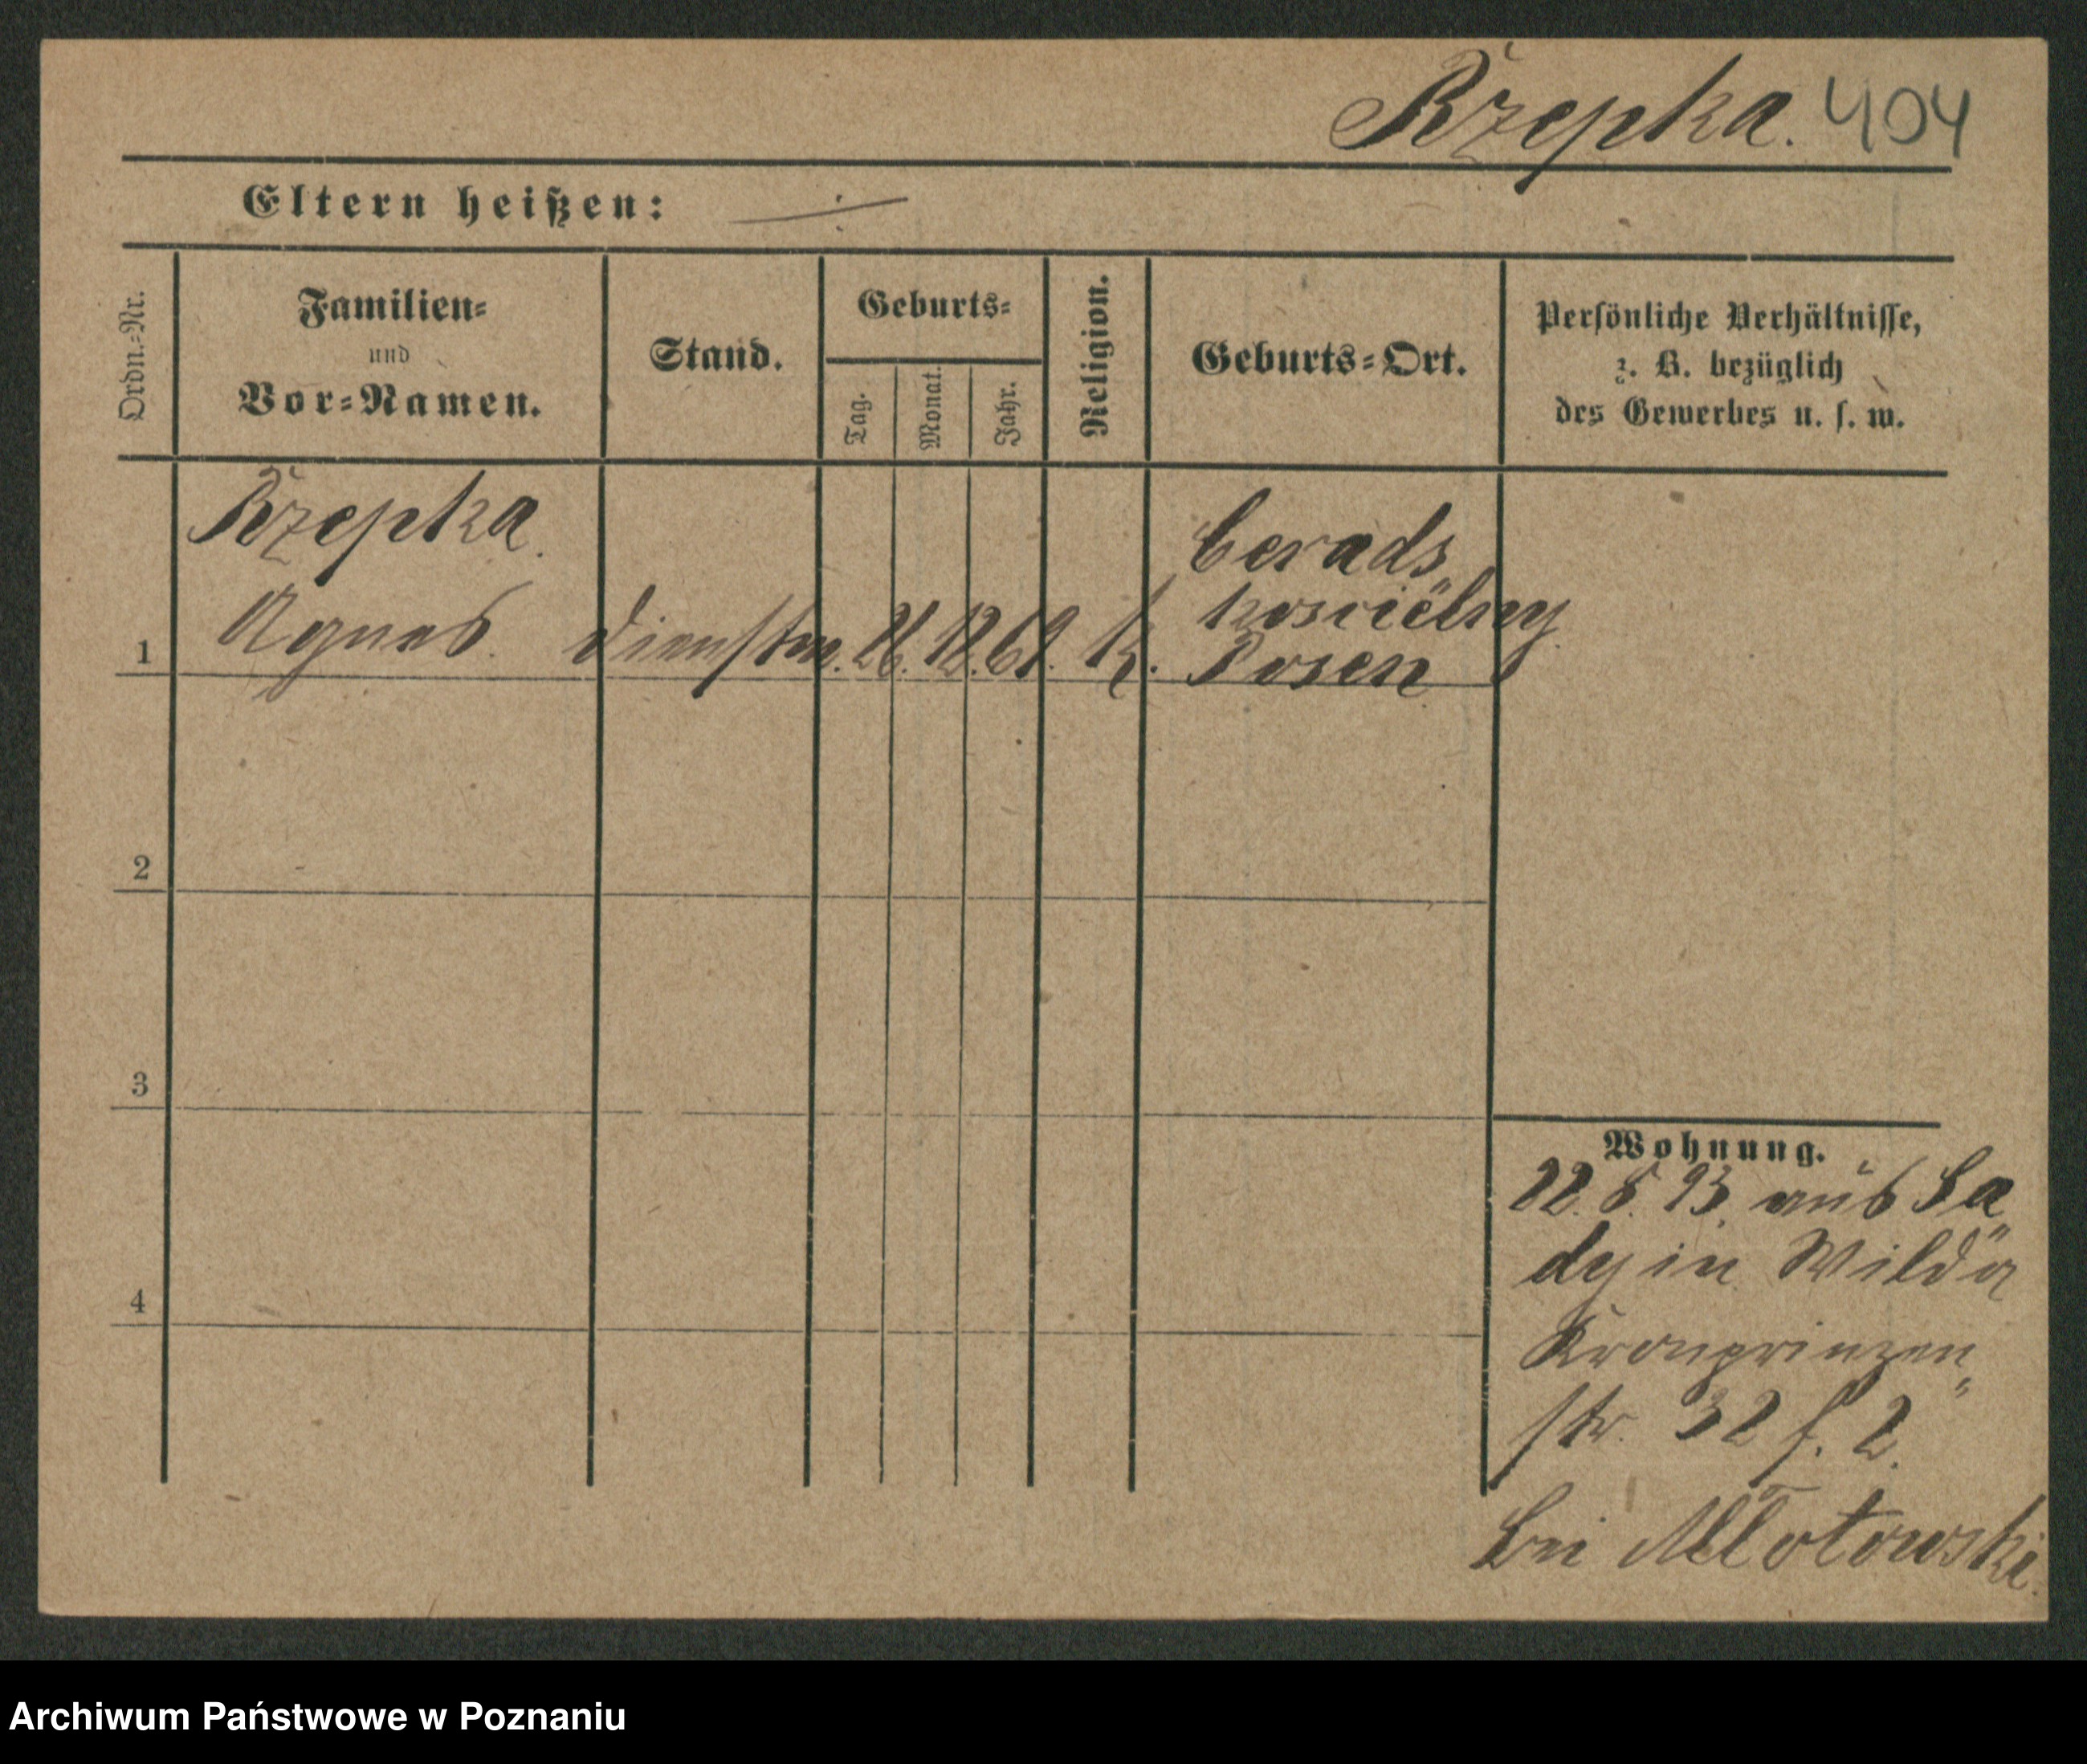 Rzepka. 404
Eltern heißen: ÷
Ordn.-Nr.
Familien-
und
Vor-Namen.
Stand.
Geburts-
Tag.
Monat.
Jahr.
Religion.
Geburts-Ort.
Persönliche Verhältnisse,
z. B. bezüglich
des Gewerbes u. s. w.
Rzepka.
Cerads
koscielny
1 Agnes. Dienstm. 12. K. Posen
2
3
4
Wohnung.
22. 8. 93. aus Sa„
dy in Wilda
Kronprinzen„
str. 32 f. 2.
bei Młotowski.
Archiwum Państwowe w Poznaniu